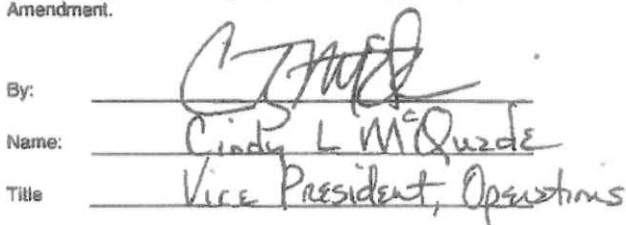 Amendment.
By:
Name: Cindy L McQuade
Title Vice President, Operations